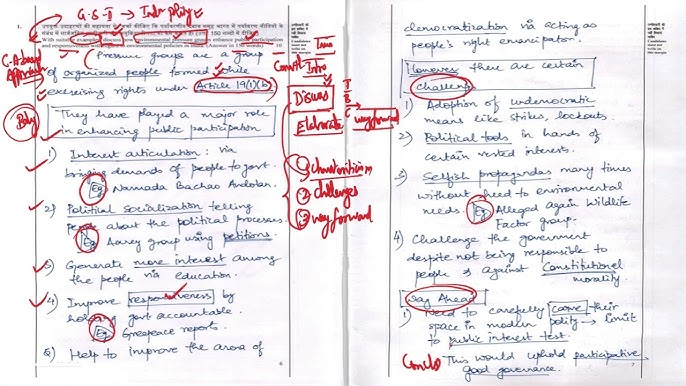 G.S-II → Indr polity
1.
उपयुक्त उदाहरणों की सहायता से चर्चा कीजिए कि पर्यावरणीय दबाव समूह भारत में पर्यावरणीय नीतियों के
संबंध में सार्वजनिक
150 शब्दों में दीजिए
With suitable examples, discuss how environmental pressure groups enhance public participation
and responsiveness with regard to environmental policies in India. (Answer in 150 words) 10
C-A based
Approach
Pressure groups are a group
of organized people formed while
exercising rights under Article 19(1)(b).
Body
They have played a major role
in enhancing public participation
1) Interest articulation: via
bringing demands of people to govt.
Eg Narmada Bachao Andolan.
2) Political socialization telling
people about the political processes
Eg Aarey group using petitions.
3) Generate more interest among
the people via education.
4) Improve responsiveness by
holding govt accountable.
Eg Greepeace reports.
5) Help to improve the arena of
6
Intro
Discuss
Elaborate
I
B
C → way forward
① Characteristics
② challenges
③ way forward
democratization via acting as
people's right emancipaton.
However there are certain
challenges
1) Adoption of undemocratic
means like strikes, lockouts.
2) Political tools in hands of
certain vested interests.
3) Selfish propagandas many times
without heed to environmental
needs. Eg Alleged again Wildlife
Factor group.
4) Challenge the government
despite not being responsible to
people & against Constitutional
morality.
Way Ahead
1) Need to carefully carve their
space in modern polity → limit
to public interest test.
Conclu
This would uphold participative
good governance.